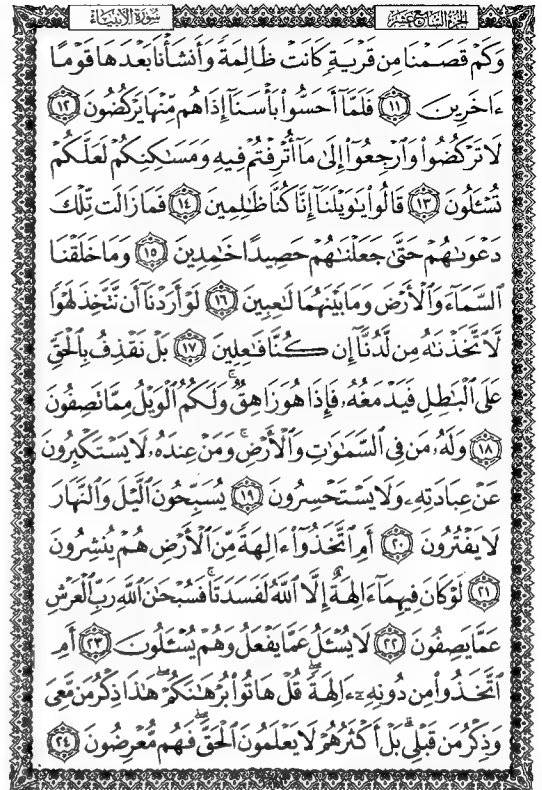 الجزء السابع عشر
سورة الأنبياء
وَكَمْ قَصَمْنَا مِن قَرْيَةٍ كَانَتْ ظَالِمَةً وَأَنشَأْنَا بَعْدَهَا قَوْمًا
ءَاخَرِينَ ١١ فَلَمَّآ أَحَسُّوا۟ بَأْسَنَآ إِذَا هُم مِّنْهَا يَرْكُضُونَ ١٢
لَا تَرْكُضُوا۟ وَٱرْجِعُوٓا۟ إِلَىٰ مَآ أُتْرِفْتُمْ فِيهِ وَمَسَٰكِنِكُمْ لَعَلَّكُمْ
تُسْـَٔلُونَ ١٣ قَالُوا۟ يَٰوَيْلَنَآ إِنَّا كُنَّا ظَٰلِمِينَ ١٤ فَمَا زَالَت تِّلْكَ
دَعْوَىٰهُمْ حَتَّىٰ جَعَلْنَٰهُمْ حَصِيدًا خَٰمِدِينَ ١٥ وَمَا خَلَقْنَا
ٱلسَّمَآءَ وَٱلْأَرْضَ وَمَا بَيْنَهُمَا لَٰعِبِينَ ١٦ لَوْ أَرَدْنَآ أَن نَّتَّخِذَ لَهْوًا
لَّٱتَّخَذْنَٰهُ مِن لَّدُنَّآ إِن كُنَّا فَٰعِلِينَ ١٧ بَلْ نَقْذِفُ بِٱلْحَقِّ
عَلَى ٱلْبَٰطِلِ فَيَدْمَغُهُۥ فَإِذَا هُوَ زَاهِقٌ ۚ وَلَكُمُ ٱلْوَيْلُ مِمَّا تَصِفُونَ
١٨ وَلَهُۥ مَن فِى ٱلسَّمَٰوَٰتِ وَٱلْأَرْضِ ۚ وَمَنْ عِندَهُۥ لَا يَسْتَكْبِرُونَ
عَنْ عِبَادَتِهِۦ وَلَا يَسْتَحْسِرُونَ ١٩ يُسَبِّحُونَ ٱلَّيْلَ وَٱلنَّهَارَ
لَا يَفْتُرُونَ ٢٠ أَمِ ٱتَّخَذُوٓا۟ ءَالِهَةً مِّنَ ٱلْأَرْضِ هُمْ يُنشِرُونَ
٢١ لَوْ كَانَ فِيهِمَآ ءَالِهَةٌ إِلَّا ٱللَّهُ لَفَسَدَتَا ۚ فَسُبْحَٰنَ ٱللَّهِ رَبِّ ٱلْعَرْشِ
عَمَّا يَصِفُونَ ٢٢ لَا يُسْـَٔلُ عَمَّا يَفْعَلُ وَهُمْ يُسْـَٔلُونَ ٢٣ أَمِ
ٱتَّخَذُوا۟ مِن دُونِهِۦٓ ءَالِهَةً ۖ قُلْ هَاتُوا۟ بُرْهَٰنَكُمْ ۖ هَٰذَا ذِكْرُ مَن مَّعِىَ
وَذِكْرُ مَن قَبْلِى ۗ بَلْ أَكْثَرُهُمْ لَا يَعْلَمُونَ ٱلْحَقَّ ۖ فَهُم مُّعْرِضُونَ ٢٤